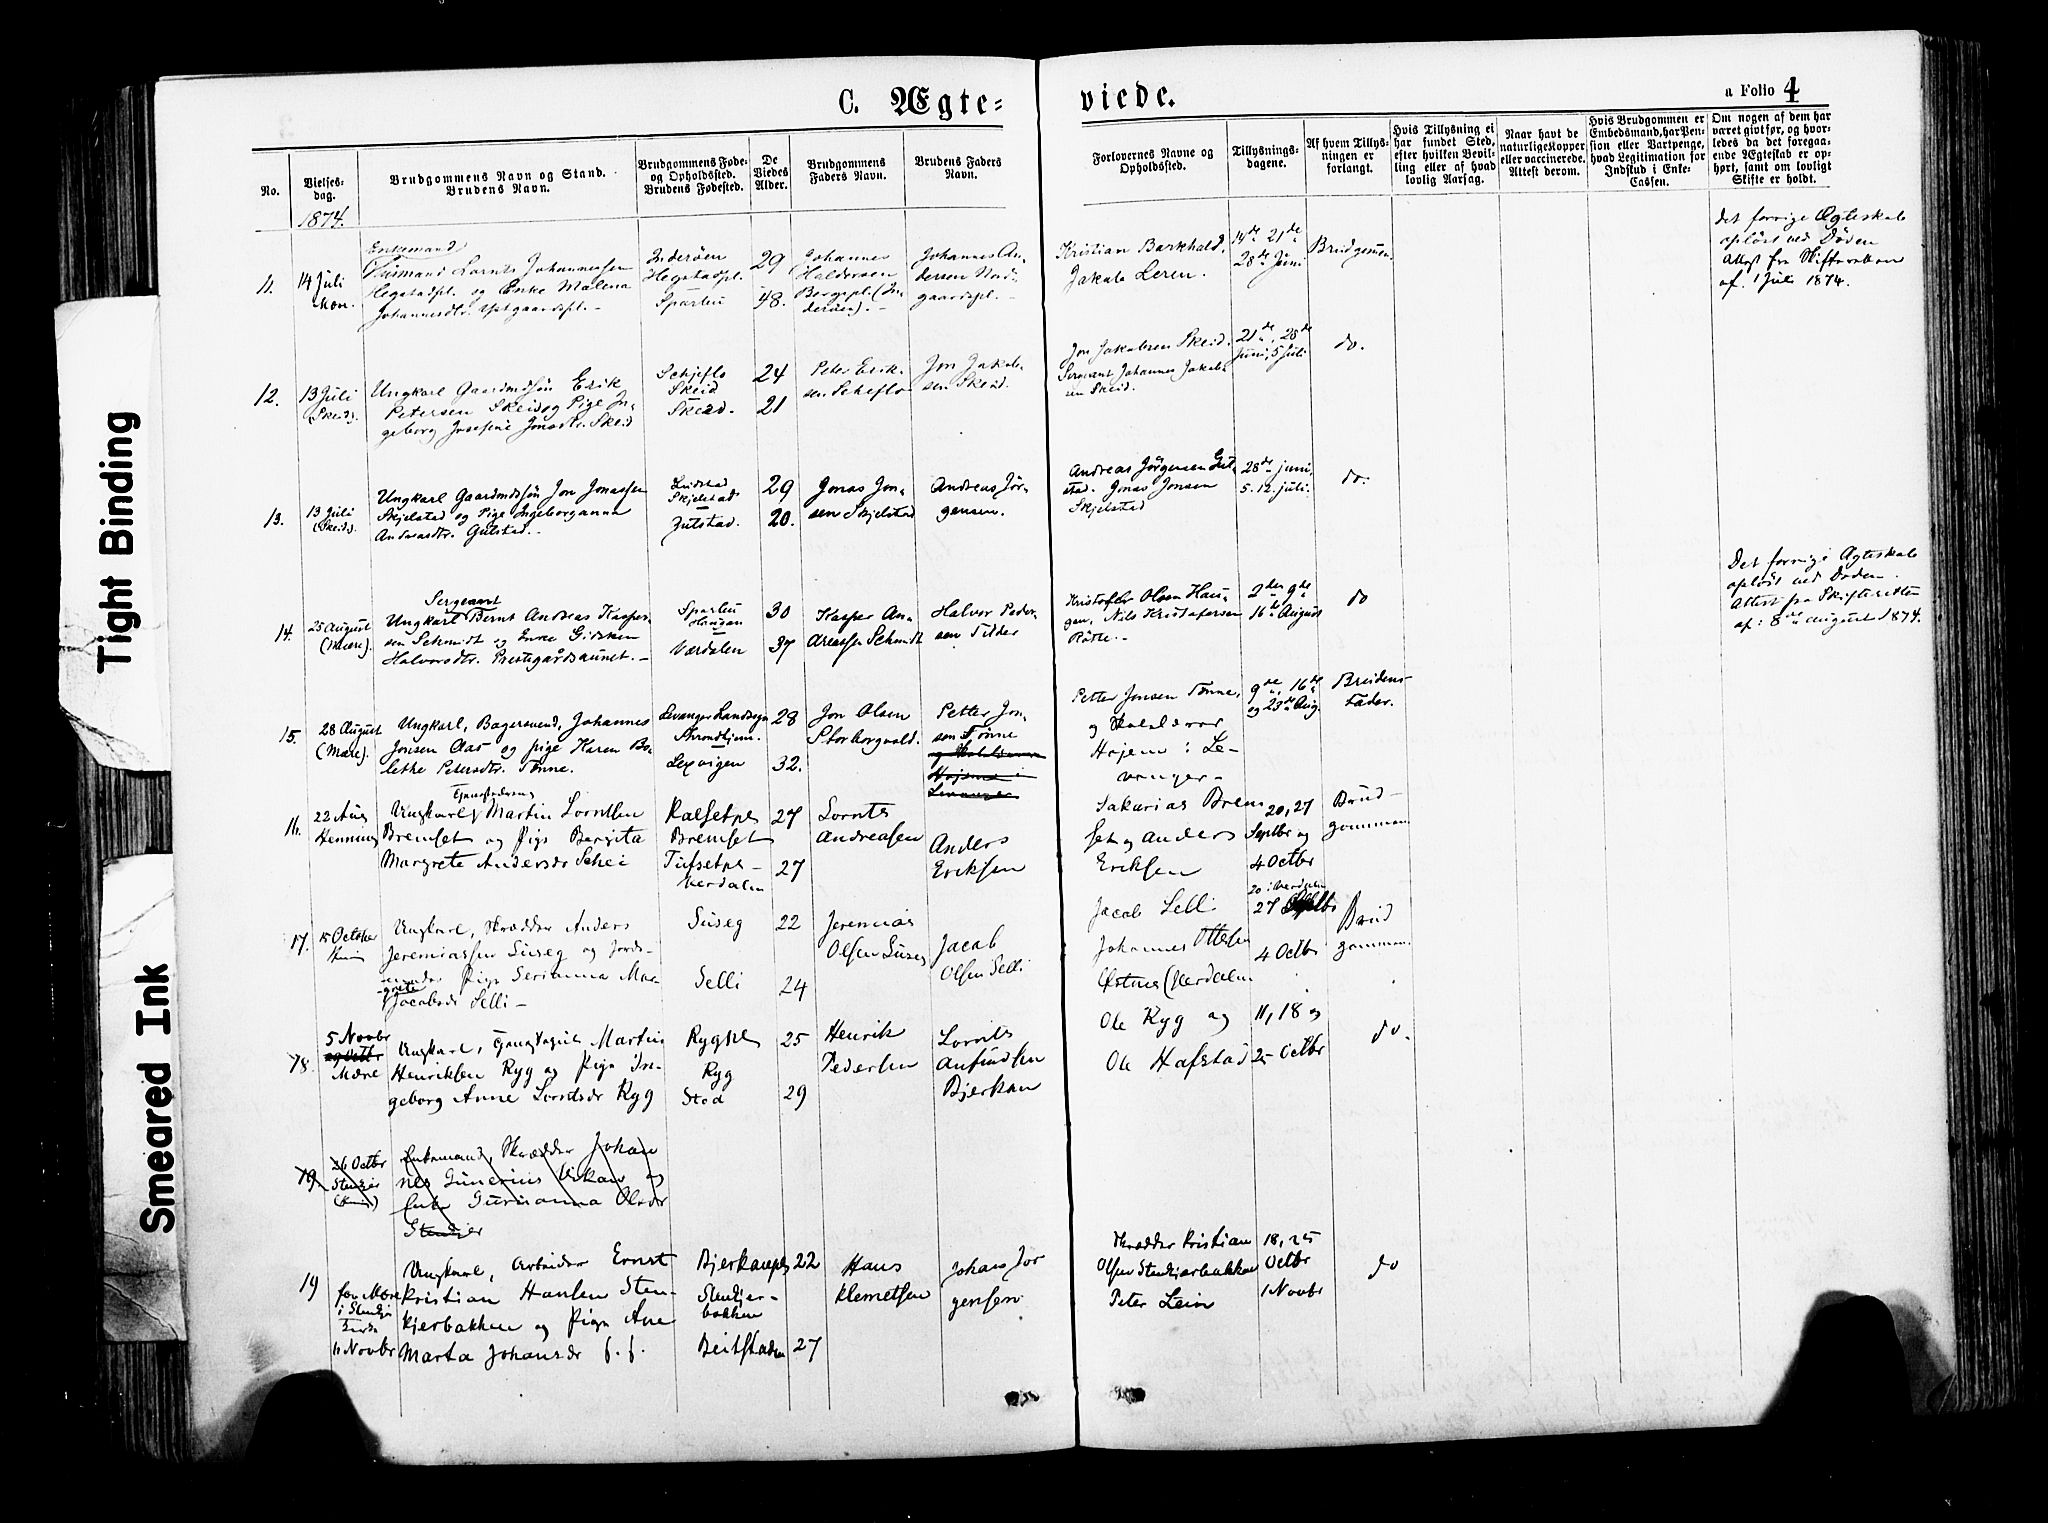 C. Ægte=
viede.
a Folio 4
No.
Vielses-
dag.
Brudgommens Navn og Stand.
Brudens Navn.
Brudgommens Føde-
og Opholdssted.
Brudens Fødested.
De
Viedes
Alder.
Brudgommens
Faders Navn.
Brudens Faders
Navn.
Forlovernes Navne og
Opholdssted.
Tillysnings-
dagene.
Af hvem Tillys-
ningen er
forlangt.
Hvis Tillysning ei
har fundet Sted,
efter hvilken Bevil-
ling eller af hvad
lovlig Aarsag.
Naar havt de
naturlige Kopper
eller vaccinerede.
Attest derom.
Hvis Brudgommen er
Embedsmand, har Pen-
sion eller Vartpenge,
hvad Legitimation for
Indskud i Enke-
Cassen.
Om nogen af dem har
været gift før, og hvor-
ledes da det foregaa-
ende Ægteskab er op-
hørt, samt om lovligt
Skifte er holdt.
1874.
11.
14 Juli
Enkemand
Husmand Lornts Johannessen
Hegstadpl. og Enke Malena
Johannesdtr.
Inderøen
Hegstadpl.
Sparbu
29
48.
Johannes
Haldorsen
Bergspl. (In-
derøen). -
Johannes An-
dersen Nord-
gaardspl. -
Kristian Barkhald.
Jakob Leren.
14de 21de
28de Juni
Brudgomen.
det forrige Ægteskab
opløst ved Døden
Attest fra Skifteretten
af. 1 Juli 1874.
12.
13 Juli
(Skeid).
Ungkarl Gaardmdsøn Erik
Petersen Skeid og Pige In-
geborg Josefine Jonsdtr. Skeid
Schjeflo
Skeid
Skeid.
24
21
Peter Erik-
sen Scheflo
Jon Jakob-
sen Skeid.
Jon Jakobsen Skeid.
Sergeant Johannes Jakob-
sen Skeid.
21de, 28de
Juni, 5 Juli
do.
13.
13 Juli
(Skeid).
Ungkarl Gaardmdsøn Jon Jonassen
Skjelstad og Pige Ingeborganna
Andreasdtr. Gulstad. -
Skjelstad
29
20.
Jonas Jon-
sen Skjelstad
Andreas Jør-
gensen.
Andreas Jørgensen Gul-
stad. Jonas Jonsen
Skjelstad
28de juni.
5. 12. juli.
do.
14.
25 August
(Mære).
Sergeant
Ungkarl Bernt Andreas Kasper-
sen Schmidt og Enke Gidsken
Halvorsdtr. Prestegårdsaunet. -
Sparbu
Haugan
Værdalen
30
37
Kasper An-
dreassen Schmidt
Halvor Peder-
sen Tilder
Kristofer Olsen Hau-
gan, Nils Kristofersen
2den 9de
16de August
do
Det forrige Ægteskab
opløst ved Døden.
Attest fra Skifteretten
af: 8de August 1874.
15.
28 August
(Mære).
Ungkarl, Bagersvend, Johannes
Jonsen Aas og pige Karen Bo-
lethe Petersdtr. Tønne.
Levanger Landsogn
Lexvigen
28
32.
Jon Olsen
Storborgvald.
Petter Jon-
sen Tønne
Petter Jonsen Tønne,
og
Hojem i Le-
vanger -
9de, 16de
og 23de Aug.
Brudens
Fader.
16.
22 Aug
Henning
Ungkarl Martin Lorntsen
Bremset og Pige Bergita
Margrete Andersdr Schei
Kalsetpl
Bremset
Tufsetpl -
Verdalen
27
27
Lornts
Andreasen
Anders
Eriksen
Sakarias Brem
set og Anders
Eriksen
20, 27
Septbr og
4 Octbr
Brud-
gommen
17.
15 October
Ungkarl, Skrædder Anders
Jeremiassen Suseg og
Pige Serianna Mar-
grete
Jacobsdr Selli -
Suseg
Selli
22
24
Jeremias
Olsen Suseg
Jacob
Olsen Selli
Jacob Selli
Johannes Ottesen
Østnes (Verdalen
20 i Verdalen
27 Septbr
4 Octbr
Brud
gommen
18.
5 Novbr
Mære
Ungkarl, Martin
Henriksen Ryg og Pige In-
geborg Anne Lorntsdr Ryg
Rygpl
Ryg
Stod
25
29
Henrik
Pedersen
Lornts
Anfindsen
Bjerkan
Ole Ryg og
Ole Hafstad
11, 18 og
25 Octbr
do.
19.
26 Octbr
Stenkjær
Enkemand, Skrædder Johan
nes Gunerius Viken og
Enke Gurianna Olsdr
Stenkjer
19
for Mære
i Stenkjær
Kirke
11 Novbr
Ungkarl, Arbeider Ernst
Kristian Hansen Sten-
kjerbakken og Pige Ane
Marta Johansdr f. f.
Bjerkanpl
Stenkjer-
bakken
Beitstaden
22
27
Hans
Klemetsen
Johan Jør
gensen
Skrædder Kristian
Olsen Stenkjærbakken
Peter Lein
18, 25
Octbr
1 Novbr
do
Tight Binding
Smeared Ink